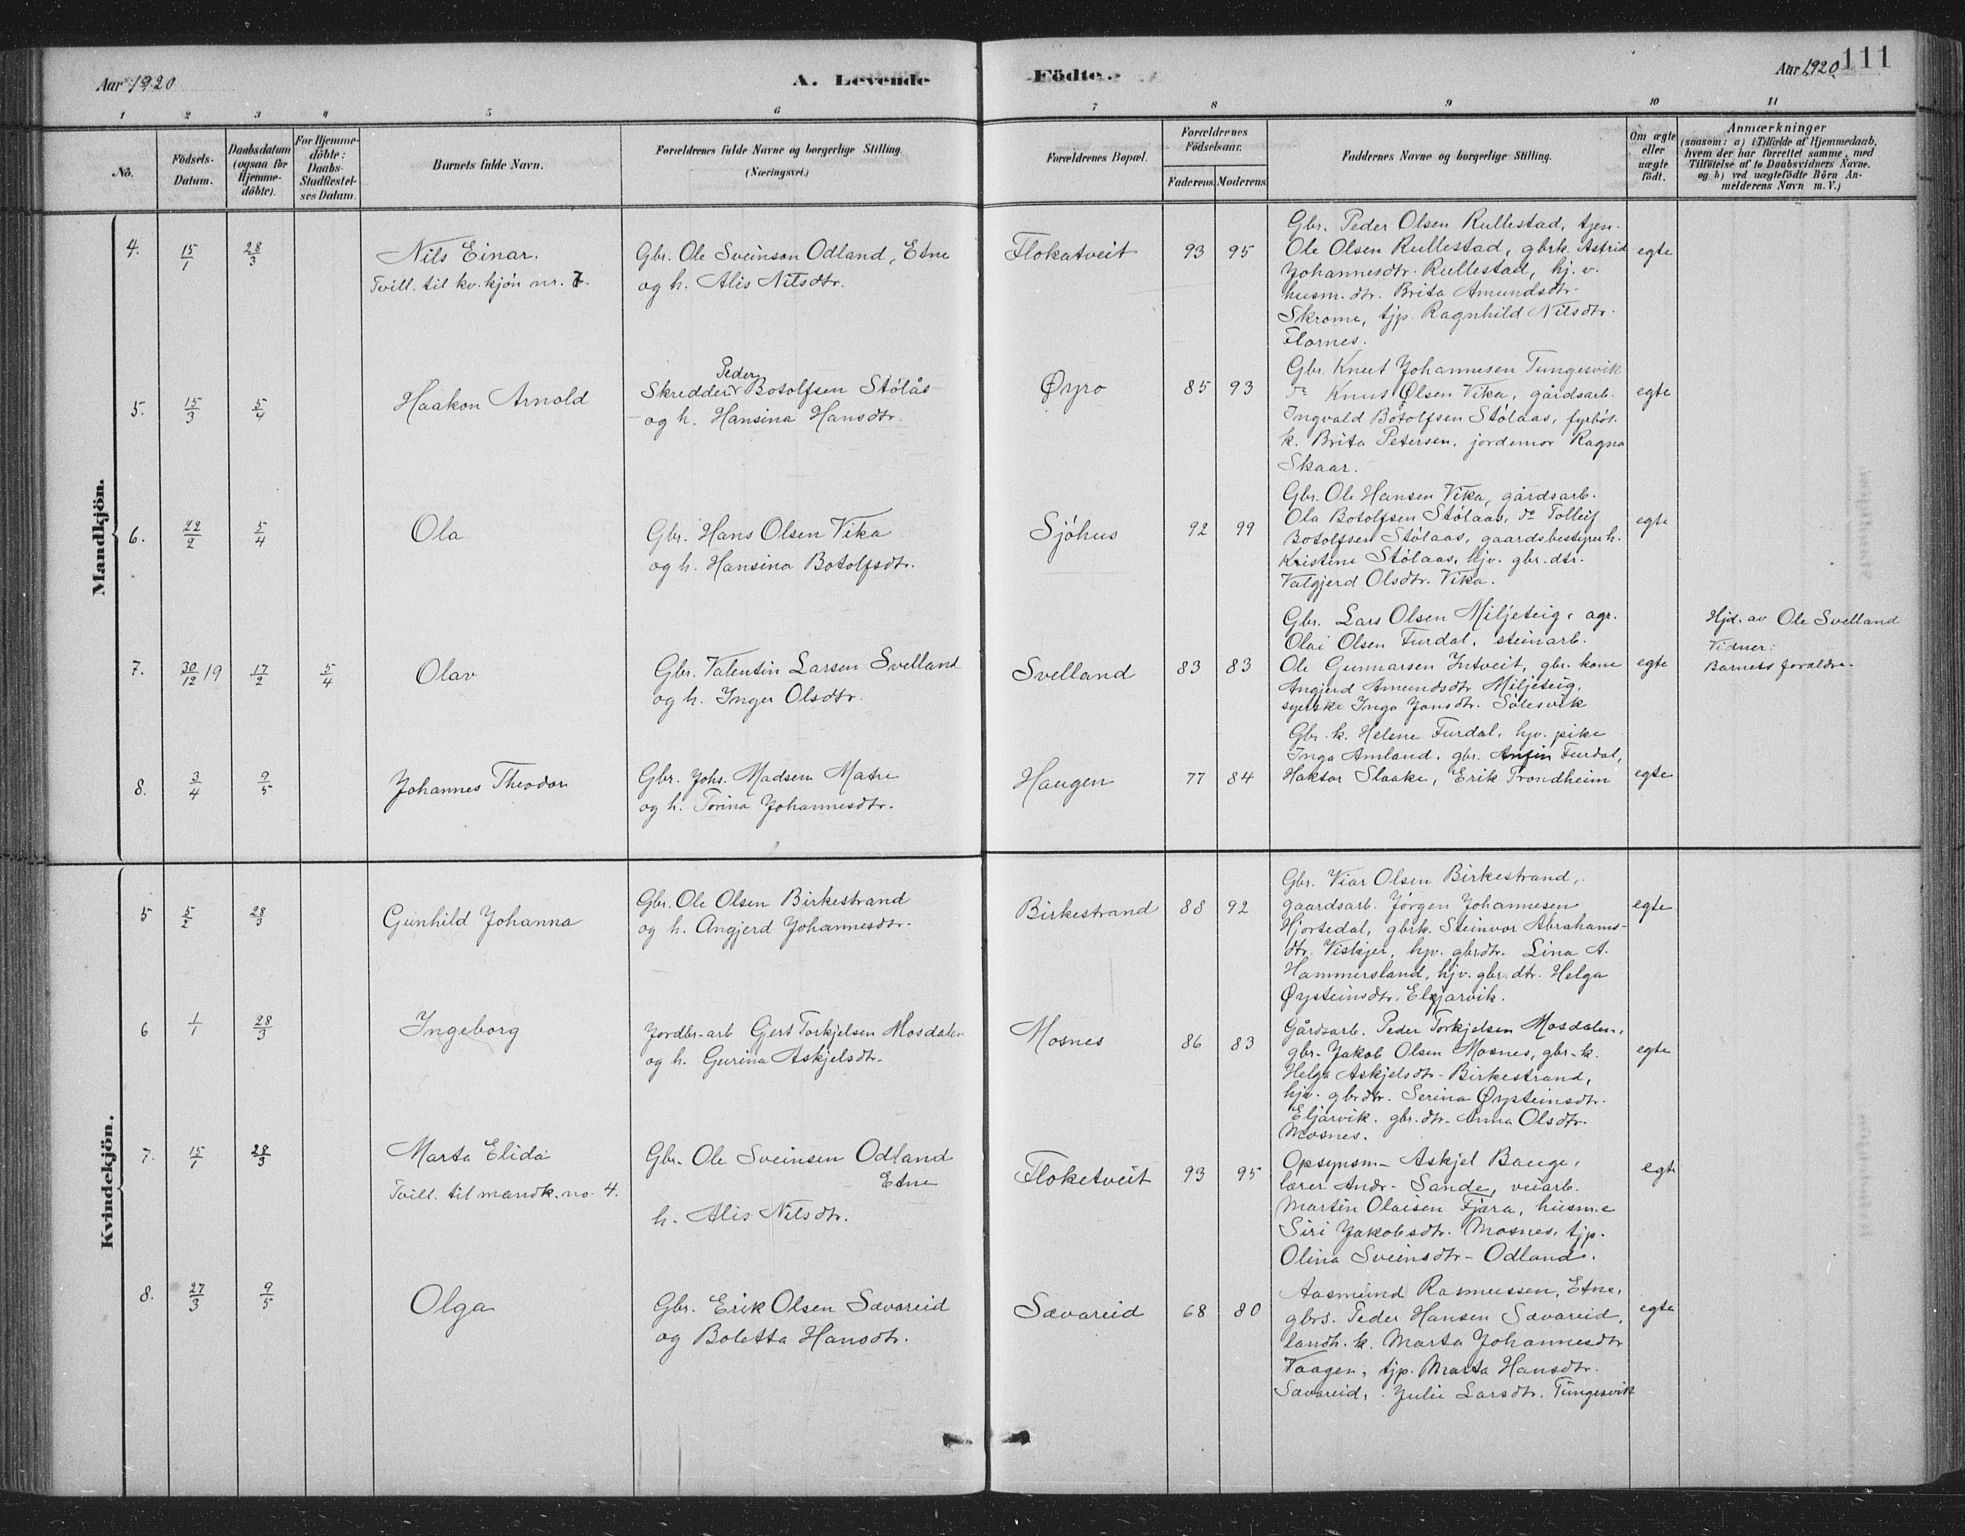 Aar 1920
A. Levende
Födte.
Aar 1920 111
1 2 3 4 5 6 7 8 9 10 11
No.
Födsels-
Datum.
Daabsdatum
(ogsaa for
Hjemme-
döbte).
For Hjemme-
döbte:
Daabs-
Stadfæstel-
ses Datum.
Barnets fulde Navn.
Forældrenes fulde Navne og borgerlige Stilling.
(Næringsvei.)
Forældrenes Bopæl.
Forældrenes
Födselsaar.
Faderens. Moderens.
Faddernes Navne og borgerlige Stilling.
Om ægte
eller
uægte
födt.
Anmærkninger
(saasom: a) i Tilfælde af Hjemmedaab,
hvem der har forrettet samme, med
Tilföielse af to Daabsvidners Navne.
og b) ved uægtefödte Börn An-
melderens Navn m. V.)
Mandkjön.
4. 15/1 28/3
Nils Einar.
Tvill. til kv. kjøn nr. 7.
Gbr. Ole Sveinson Odland, Etne
og h. Alis Nilsdtr.
Flokatveit
93 95
Gbr. Peder Olsen Rullestad, tjen.
Ole Olsen Rullestad, gbrk. Astrid
Johannesdtr. Rullestad, hj. v.
husm. dtr. Brita Amundsdtr.
Skrome, tjp. Ragnhild Nilsdtr.
Flornes.
egte
5. 15/3 5/4
Haakon Arnold
Peder
Skredder Botolfsen Stølås
og h. Hansina Hansdtr.
Øyro
85 93
Gbr. Knut Johannesen Tungesvik
do Knut Olsen Vika, gårdsarb.
Ingvald Botolfsen Stølaas, fyrbøt.
k. Brita Petersen, jordemor Ragna
Skaar.
egte
6. 22/2 5/4
Ola
Gbr. Hans Olsen Vika
og h. Hansina Botolfsdtr.
Sjøhus
92 99
Gbr. Ole Hansen Vika, gårdsarb.
Ola Botolfsen Stølaas, do Tolleif
Botolfsen Stølaas, gaardsbestyrerh.
Kristine Stølaas, hjv. gbr. dtr.
Valgjerd Olsdtr. Vika.
egte
7. 30/12 19 17/2 5/4
Olav
Gbr. Valentin Larsen Svelland
og h. Inger Olsdtr.
Svelland
83 83
Gbr. Lars Olsen Miljeteig, agr.
Olai Olsen Furdal, steinarb.
Ole Gunnarsen Intveit, gbr. kone
Angjerd Amundsdtr. Miljeteig,
syerske Inga Jonsdtr. Sølesvik
egte
Hjd. av Ole Svelland
Vidner:
Barnets foraldre.
8. 3/4 9/5
Johannes Theodor
Gbr. Johs. Madsen Matre
og h. Torina Johannesdtr.
Haugen
77 84
Gbr. k. Helene Furdal, hjv. pike
Inga Amland, gbr. Anfin Furdal,
Haktor Slaake, Erik Trondheim
egte
Kvindekjön.
5 5/2 28/3
Gunhild Johanna
Gbr. Ole Olsen Birkestrand
og h. Angjerd Johannesdtr.
Birkestrand
88 92
Gbr. Viar Olsen Birkestrand,
gaardsarb. Jørgen Johannesen
Hjortedal, gbrk. Steinvor Abrahams-
dtr. Viskjer, hjv. gbrdtr. Lina A.
Hammersland, hjv. gbr. dtr. Helga
Øysteinsdtr. Eljarvik.
egte
6 1/1 28/3
Ingeborg
Jordbr. arb Gjert Torkjelsen Mosdalen
og h. Gurina Askjelsdtr.
Mosnes
86 83
Gårdsarb. Peder Torkjelsen Mosdalen,
gbr. Jakob Olsen Mosnes, gbr. k.
Helga Askjelsdtr. Birkestrand,
hjv. gbrdtr. Serina Øysteinsdtr.
Eljarvik. gbr. dtr. Anna Olsdtr.
Mosnes.
egte
7. 15/1 28/3
Marta Elida
Tvill. til mandk. no. 4.
Gbr. Ole Sveinsen Odland
Etne
h. Alis Nilsdtr.
Floketveit
93 95
Opsynsm. Askjel Bauge,
lærer Andr. Sande, veiarb.
Martin Olaisen Fjæra, husm. e
Siri Jakobsdtr. Mosnes, tjp.
Olina Sveinsdtr. Odland.
egte
8. 27/3 9/5
Olga
Gbr. Erik Olsen Sævareid
og Boletta Hansdtr.
Sævareid
68 80
Aasmund Rasmussen, Etne,
gbrs. Peder Hansen Sævareid,
landh. k. Marta Johannesdtr
Vaagen, tjp. Marta Hansdtr.
Sævareid, Julie Larsdtr. Tungesvik
egte